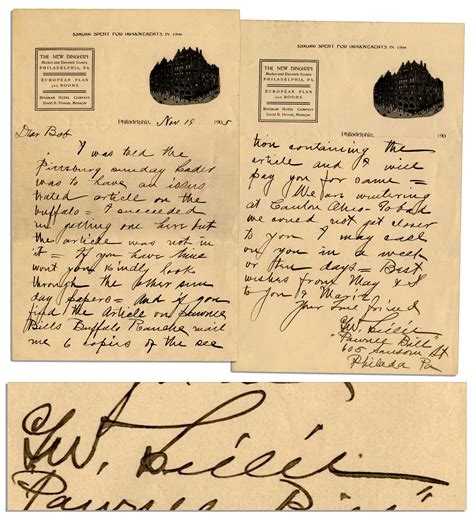 $200,000 SPENT FOR IMPROVEMENTS IN 1904
THE NEW BINGHAM
Market and Eleventh Streets
PHILADELPHIA, PA.
EUROPEAN PLAN
AND ROOMS
BINGHAM HOTEL COMPANY
David B. Provan, Manager
Philadelphia, Nov 19 1905
Dear Bob
I was told the
Pittsburg sunday leader
was to have an illus
trated article on the
buffalo = I succeeded
in getting one here but
the article was not in
it = If you have time
wont you kindly look
through the other sun
day papers = and if you
find the article on Pawnee
Bills Buffalo Ranche mail
me 6 copies of the sec
$200,000 SPENT FOR IMPROVEMENTS IN 1904
THE NEW BINGHAM
Market and Eleventh Streets
PHILADELPHIA, PA.
EUROPEAN PLAN
AND ROOMS
BINGHAM HOTEL COMPANY
David B. Provan, Manager
Philadelphia, 190
tion containing the
article and I will
pay you for same =
We are wintering
at Canton Ohio
we could not get closer
to you I may call
on you in a week
or ten days = Best
wishes from May & I
to you &
Your true friend
G.W. Lillie
"Pawnee Bill"
605 Sansom St
Philada Pa
G.W. Lillie
"Pawnee Bill"